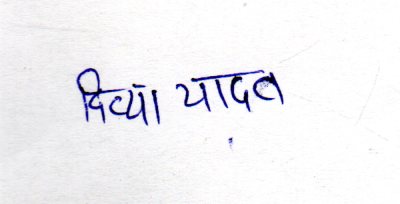 दिव्या यादव